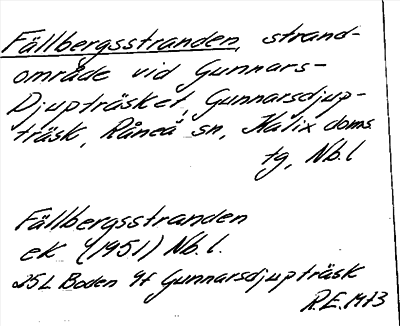 Fällbergsstranden, strand-
område vid Gunnars-
Djupträsket, Gunnarsdjup-
träsk, Råneå sn, Kalix doms.
tg, Nb.l
Fällbergsstranden
ek (1951) Nb. l.
25L Boden 9f Gunnarsdjupträsk
R.E. 1973